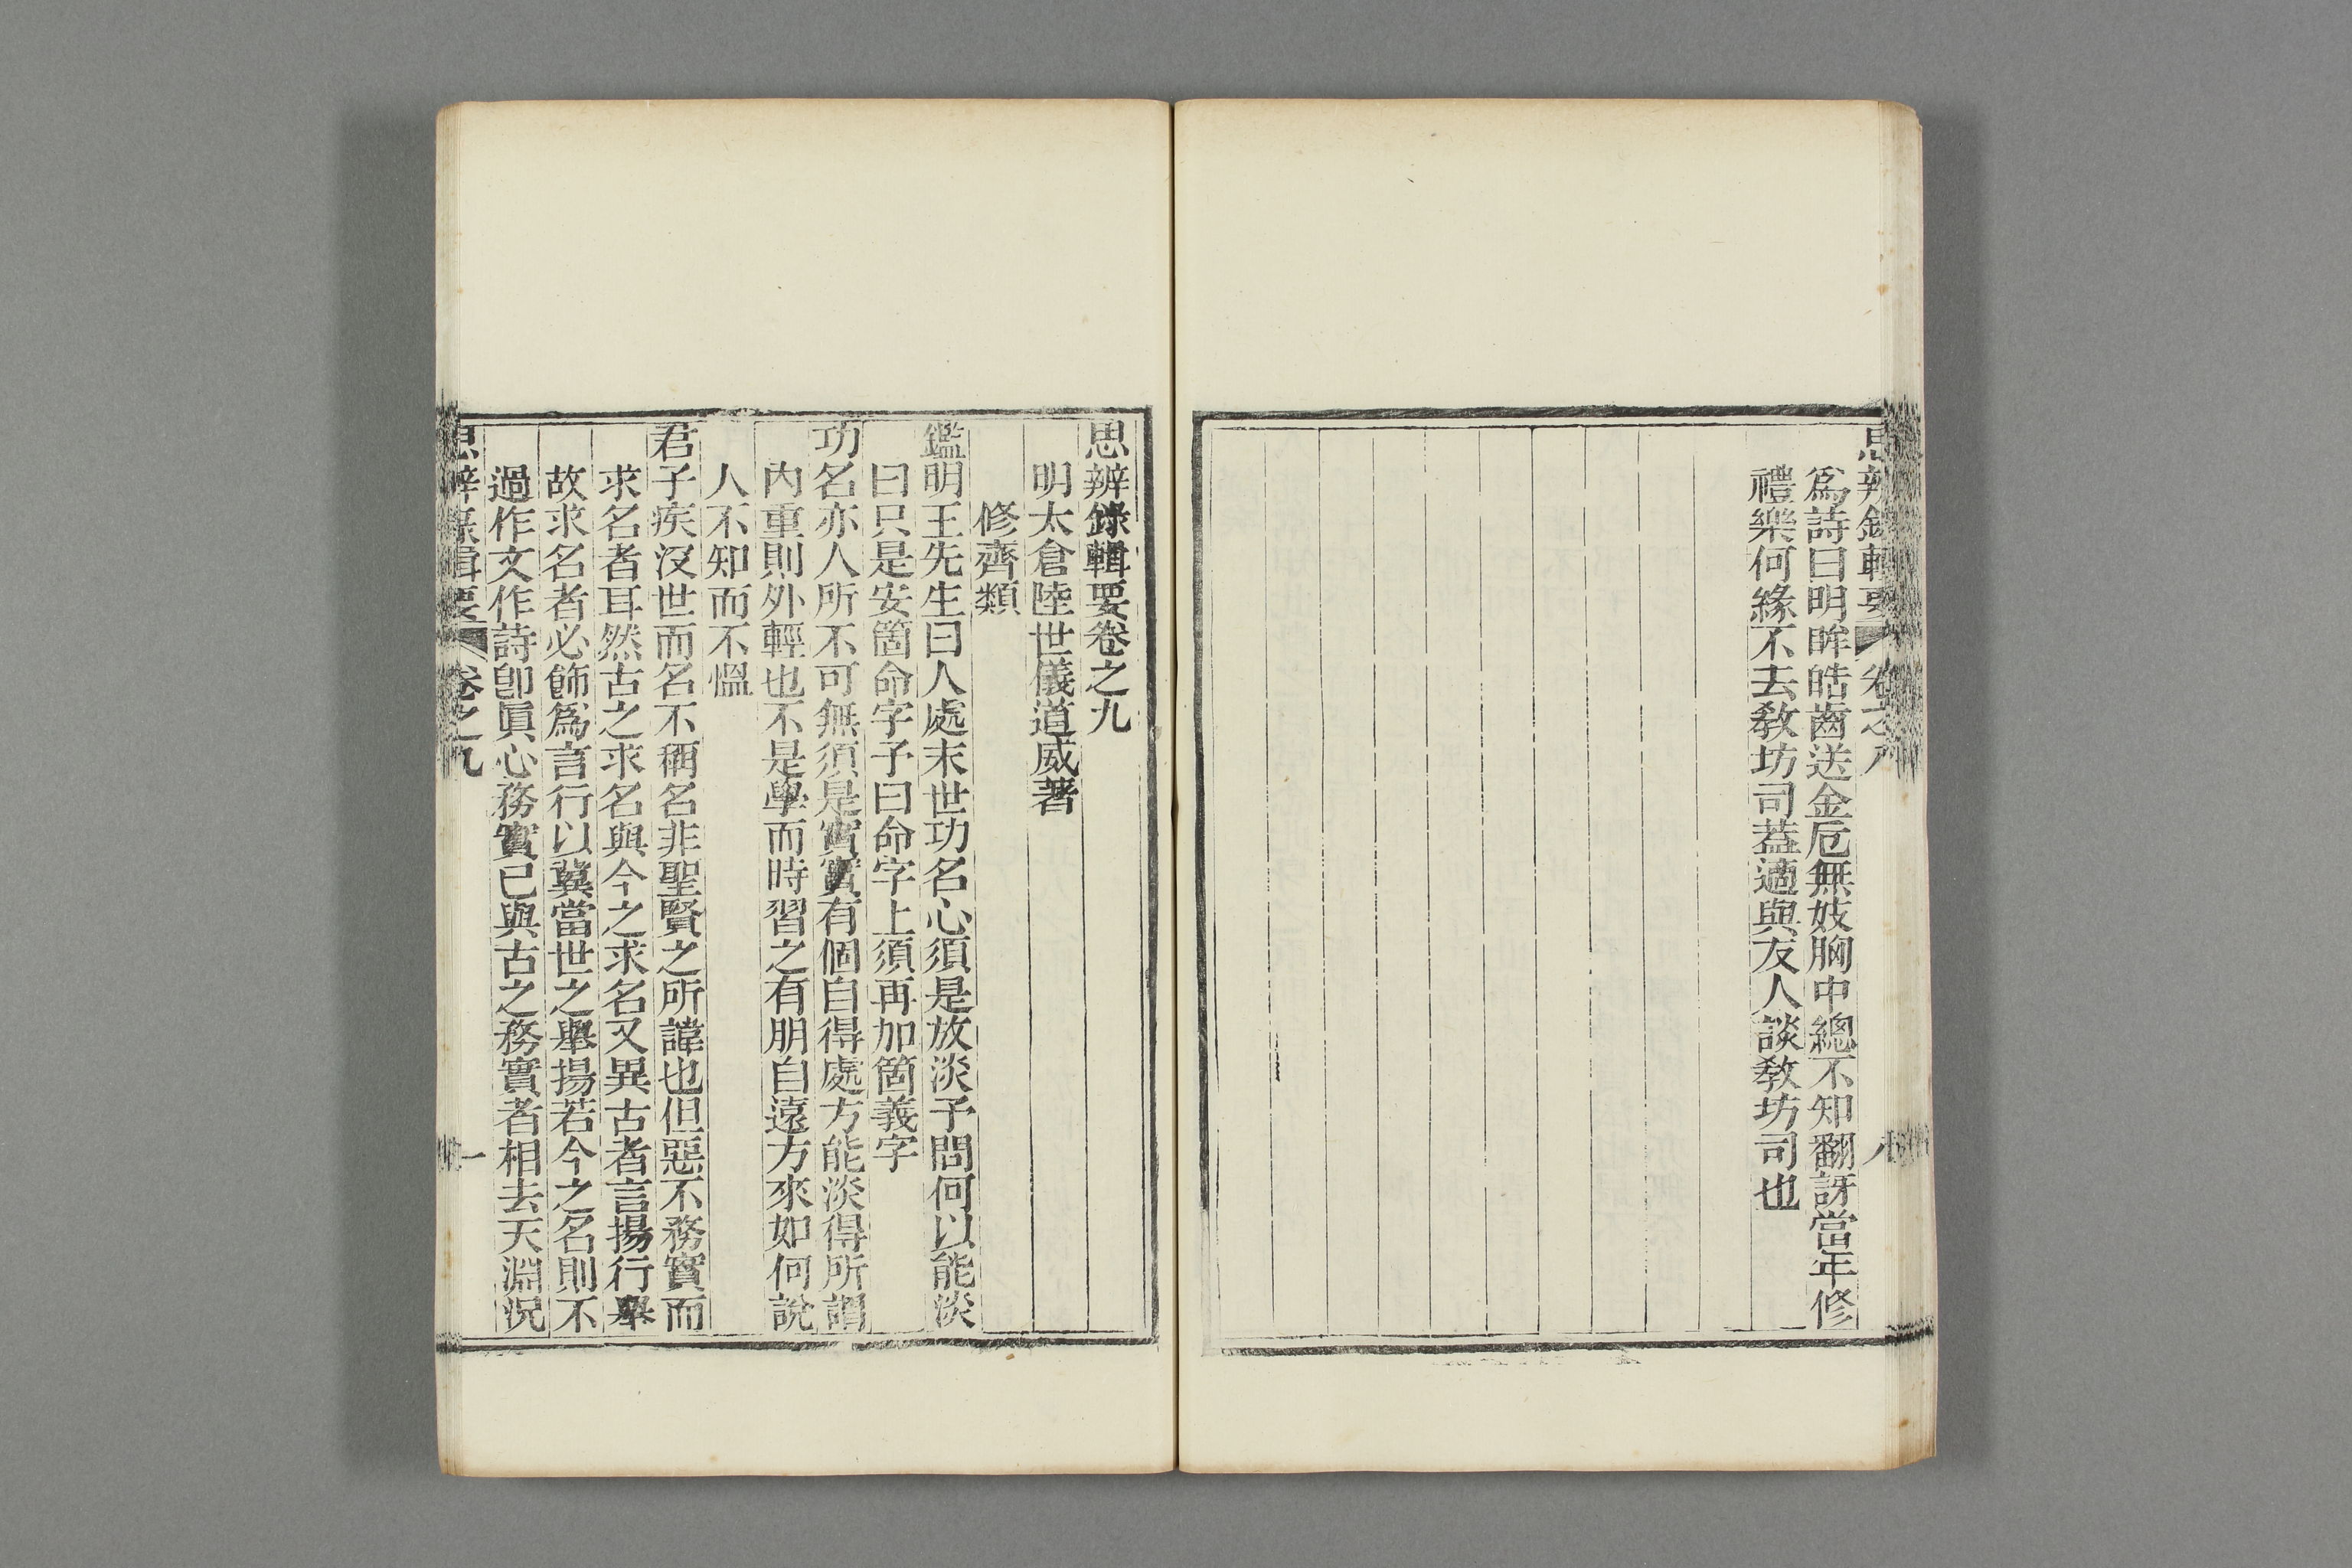 思辨錄輯要 卷之八 八
爲詩曰明眸皓齒送金卮無妓胸中總不知翻訝當年修
禮樂何緣不去敎坊司葢適與友人談敎坊司也
思辨錄輯要卷之九
明太倉陸世儀道威著
修齊類
鑑明王先生曰人處末世功名心須是放淡予問何以能淡
曰只是安箇命字予曰命字上須再加箇義字
功名亦人所不可無須是實實有個自得處方能淡得所謂
內重則外輕也不是學而時習之有朋自遠方來如何說
人不知而不慍
君子疾沒世而名不稱名非聖賢之所諱也但惡不務實而
求名者耳然古之求名與今之求名又異古者言揚行舉
故求名者必飾爲言行以冀當世之舉揚若今之名則不
過作文作詩卽眞心務實已與古之務實者相去天淵況
思辨錄輯要 卷之九 一